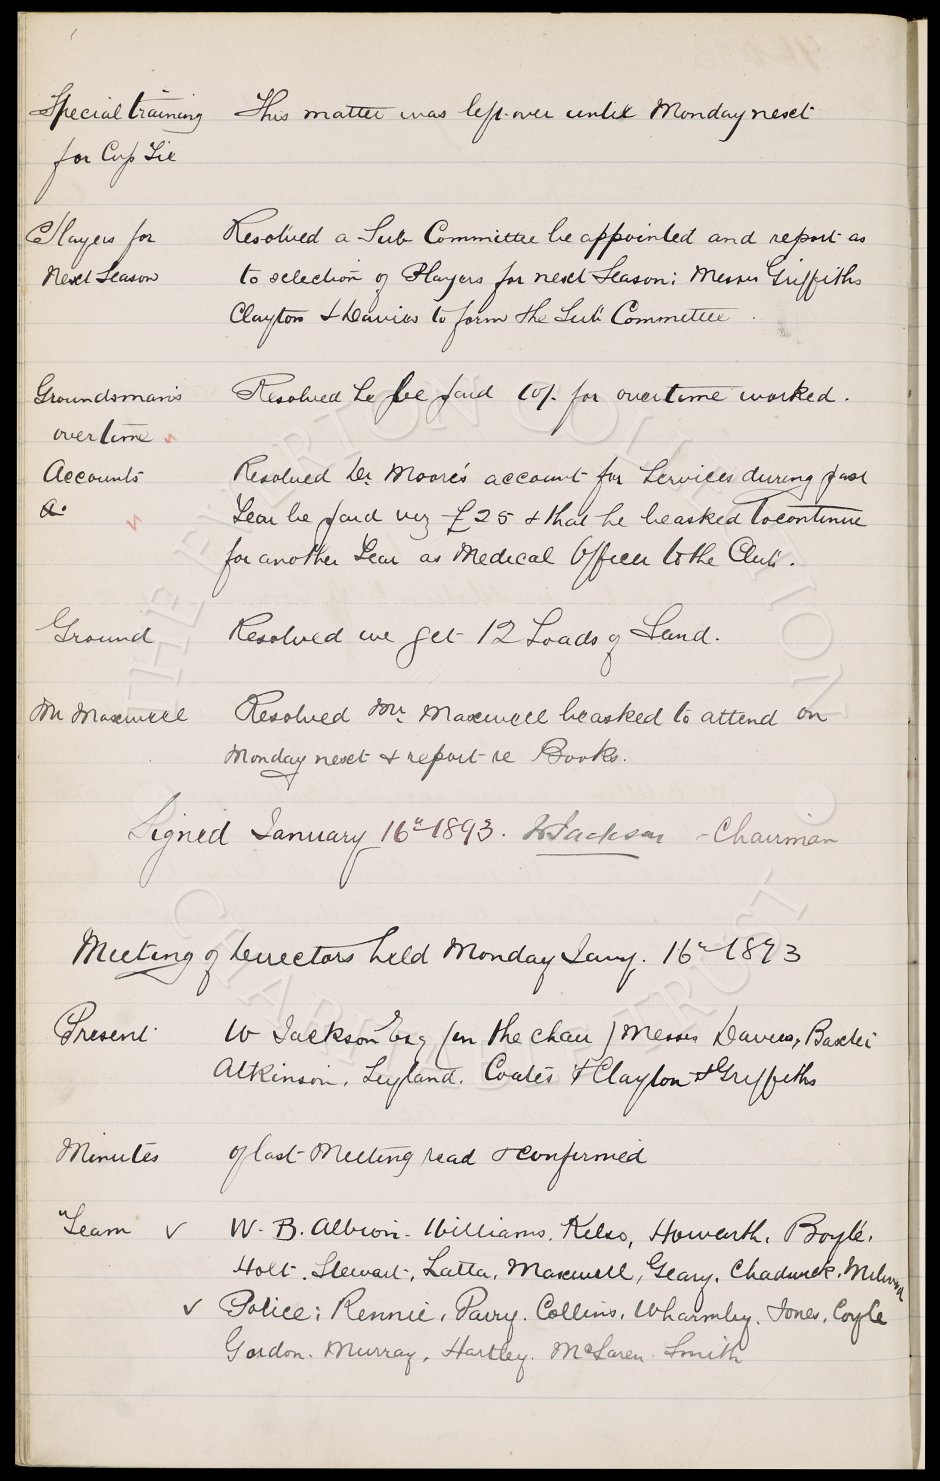 Special training This matter was left over until Monday next
for Cup Tie
Players for Resolved a Sub Committee be appointed and report as
Next Season to selection of Players for next Season: Messrs Griffiths
Clayton & Davies to form the Sub Committee.
Groundsman's Resolved he be paid 10/- for overtime worked.
overtime
Accounts Resolved Dr. Moore's account for Services during past
Year be paid viz £25 & that he be asked to continue
for another Year as Medical Officer to the Club.
Ground Resolved we get 12 Loads of Sand.
Mr Maxwell Resolved Mr. Maxwell be asked to attend on
Monday next & report re Books.
Signed January 16th 1893. W Jackson - Chairman
Meeting of Directors held Monday Jany. 16th 1893
Present W Jackson Esq (in the chair) Messrs Davies, Baxter
Atkinson, Leyland, Coates & Clayton & Griffiths
Minutes of last Meeting read & confirmed
Team ✓ W. B. Albion. Williams, Kelso, Howarth, Boyle,
Holt, Stewart, Latta, Maxwell, Geary, Chadwick, Milward
✓ Police: Rennie, Parry, Collins, Wharmby, Jones, Coyle
Gordon, Murray, Hartley, McLaren, Smith
THE EVERTON COLLECTION
CHARITABLE TRUST